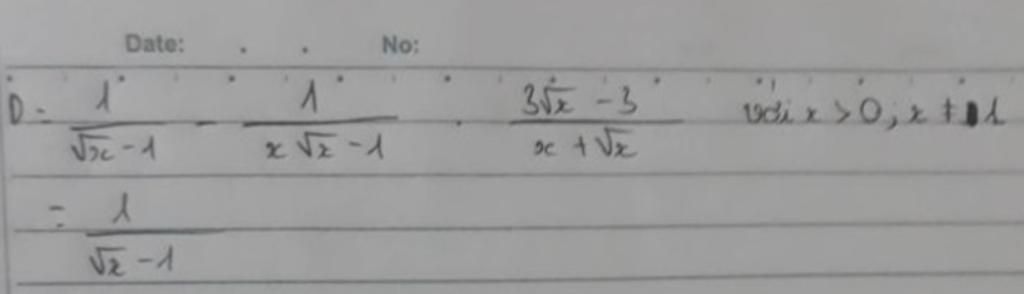 Date: . . No:
D = \frac{1}{\sqrt{x} - 1} - \frac{1}{x\sqrt{x} - 1} \cdot \frac{3\sqrt{x} - 3}{x + \sqrt{x}} với x > 0 ; x ≠ 1
= \frac{1}{\sqrt{x} - 1}